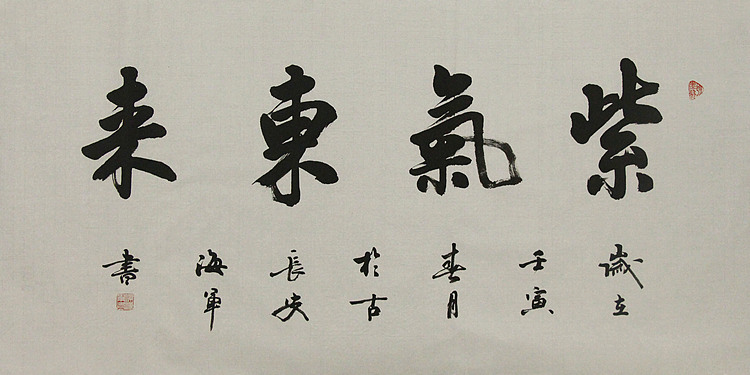 紫氣東来
歲在
壬寅
春月
於古
長安
海軍
書